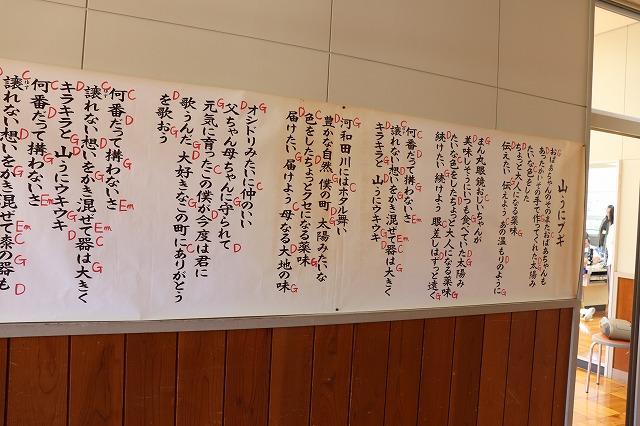 山うにブギ
おばあちゃんのそのまたおばあちゃんも
あったかいその手で作ってくれた太陽み
たいな色をした
ちょっと大人になる薬味
伝えたい 伝えよう あの温もりのように
まん丸眼鏡おじいちゃんが
美味しそうにいつも食べていた太陽み
たいな色をしたちょっと大人になる薬味
続けたい 続けよう 眼差しはずっと遠く
何番だって構わないさ
譲れない想いをかき混ぜて器は大きく
キラキラと 山うにウキウキ
河和田川にはホタル舞い
豊かな自然 僕の町 太陽みたいな
色をしたちょっとクセになる薬味
届けたい 届けよう 母なる大地の味
オシドリみたいに仲のいい
父ちゃん母ちゃんに守られて
元気に育ったこの僕が今度は君に
歌うんだ 大好きなこの町にありがとう
を歌おう
何番だって構わないさ
譲れない想いをかき混ぜて器は大きく
キラキラと 山うにウキウキ
何番だって構わないさ
譲れない想いをかき混ぜて漆の器も